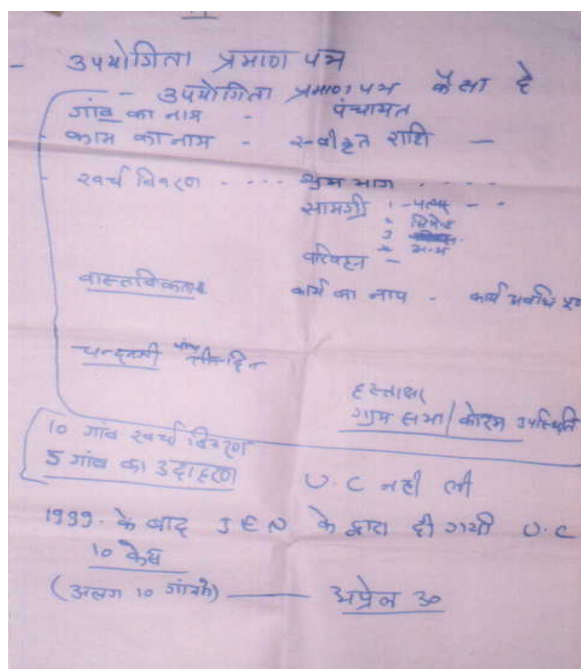 - उपयोगिता प्रमाण पत्र
- उपयोगिता प्रमाण पत्र कैसा है
गांव का नाम - पंचायत
- काम का नाम - स्वीकृत राशि -
- खर्च विवरण - .... श्रम भाग .....
सामग्री : - पत्थर - -
परिवहन -
कार्य का नाप - कार्य अवधि
तीन दिन
हस्ताक्षर
ग्राम सभा / कोरम उपस्थिति
10 गांव खर्च विवरण
5 गांव का उदाहरण U.C नही ली
1999. के बाद JEN के द्वारा दी गयी U.C
10 केस
(अलग 10 गांवके) —— अप्रेल 30